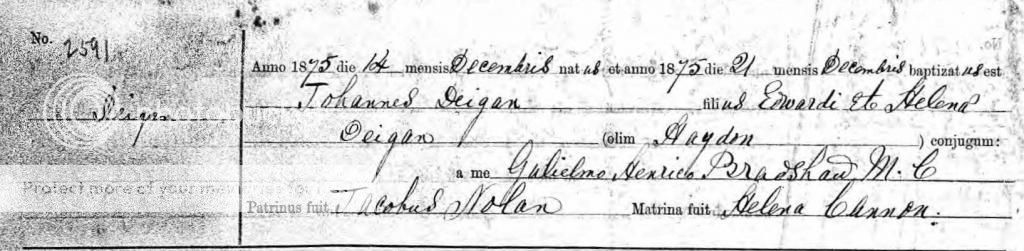 No. 2591.
Anno 1875 die 14 mensis Decembris natus et anno 1875 die 21 mensis Decembris baptizatus est
Deigan
Johannes Deigan filius Edwardi et Helena
Deigan (olim Haydon ) conjugum:
a me Gulielmo Henrico Bradshaw M. C
Protect more of your memories for
Patrinus fuit Jacobus Nolan Matrina fuit Helena Cannon.